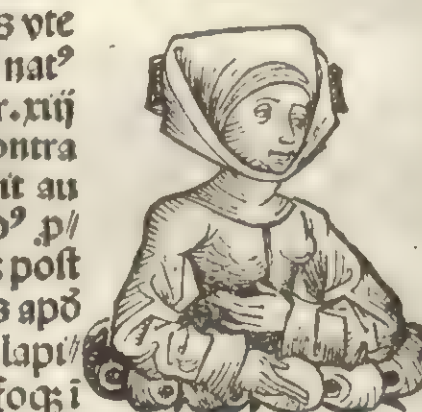 s vte
natꝰ
r. xiij
ontra
nit au
oꝰ .p//
s post
s apō
lapi//
foqꝫ i